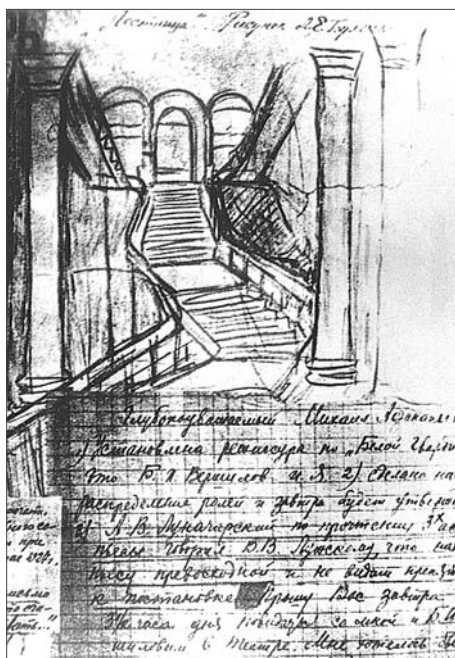 "Лестница". Рисунок А.Е.
Глубокоуважаемый Михаил Афанасье
1) Установлена режиссура по "Белой Гварди
Что Б. И. Вершилов и Я. 2) Сделано на
распределение ролей и завтра будет утвержд
3) А. В. Луначарский по прочтении 3х ак
пьесы говорил В. В. Лужскому, что на
пьесу превосходной и не видит препят
к постановке. Прошу Вас завтра
3¼ часа дня повидать со мной и Б. И
шиловым в театре. Мне хотелось
при
1926,
ать."